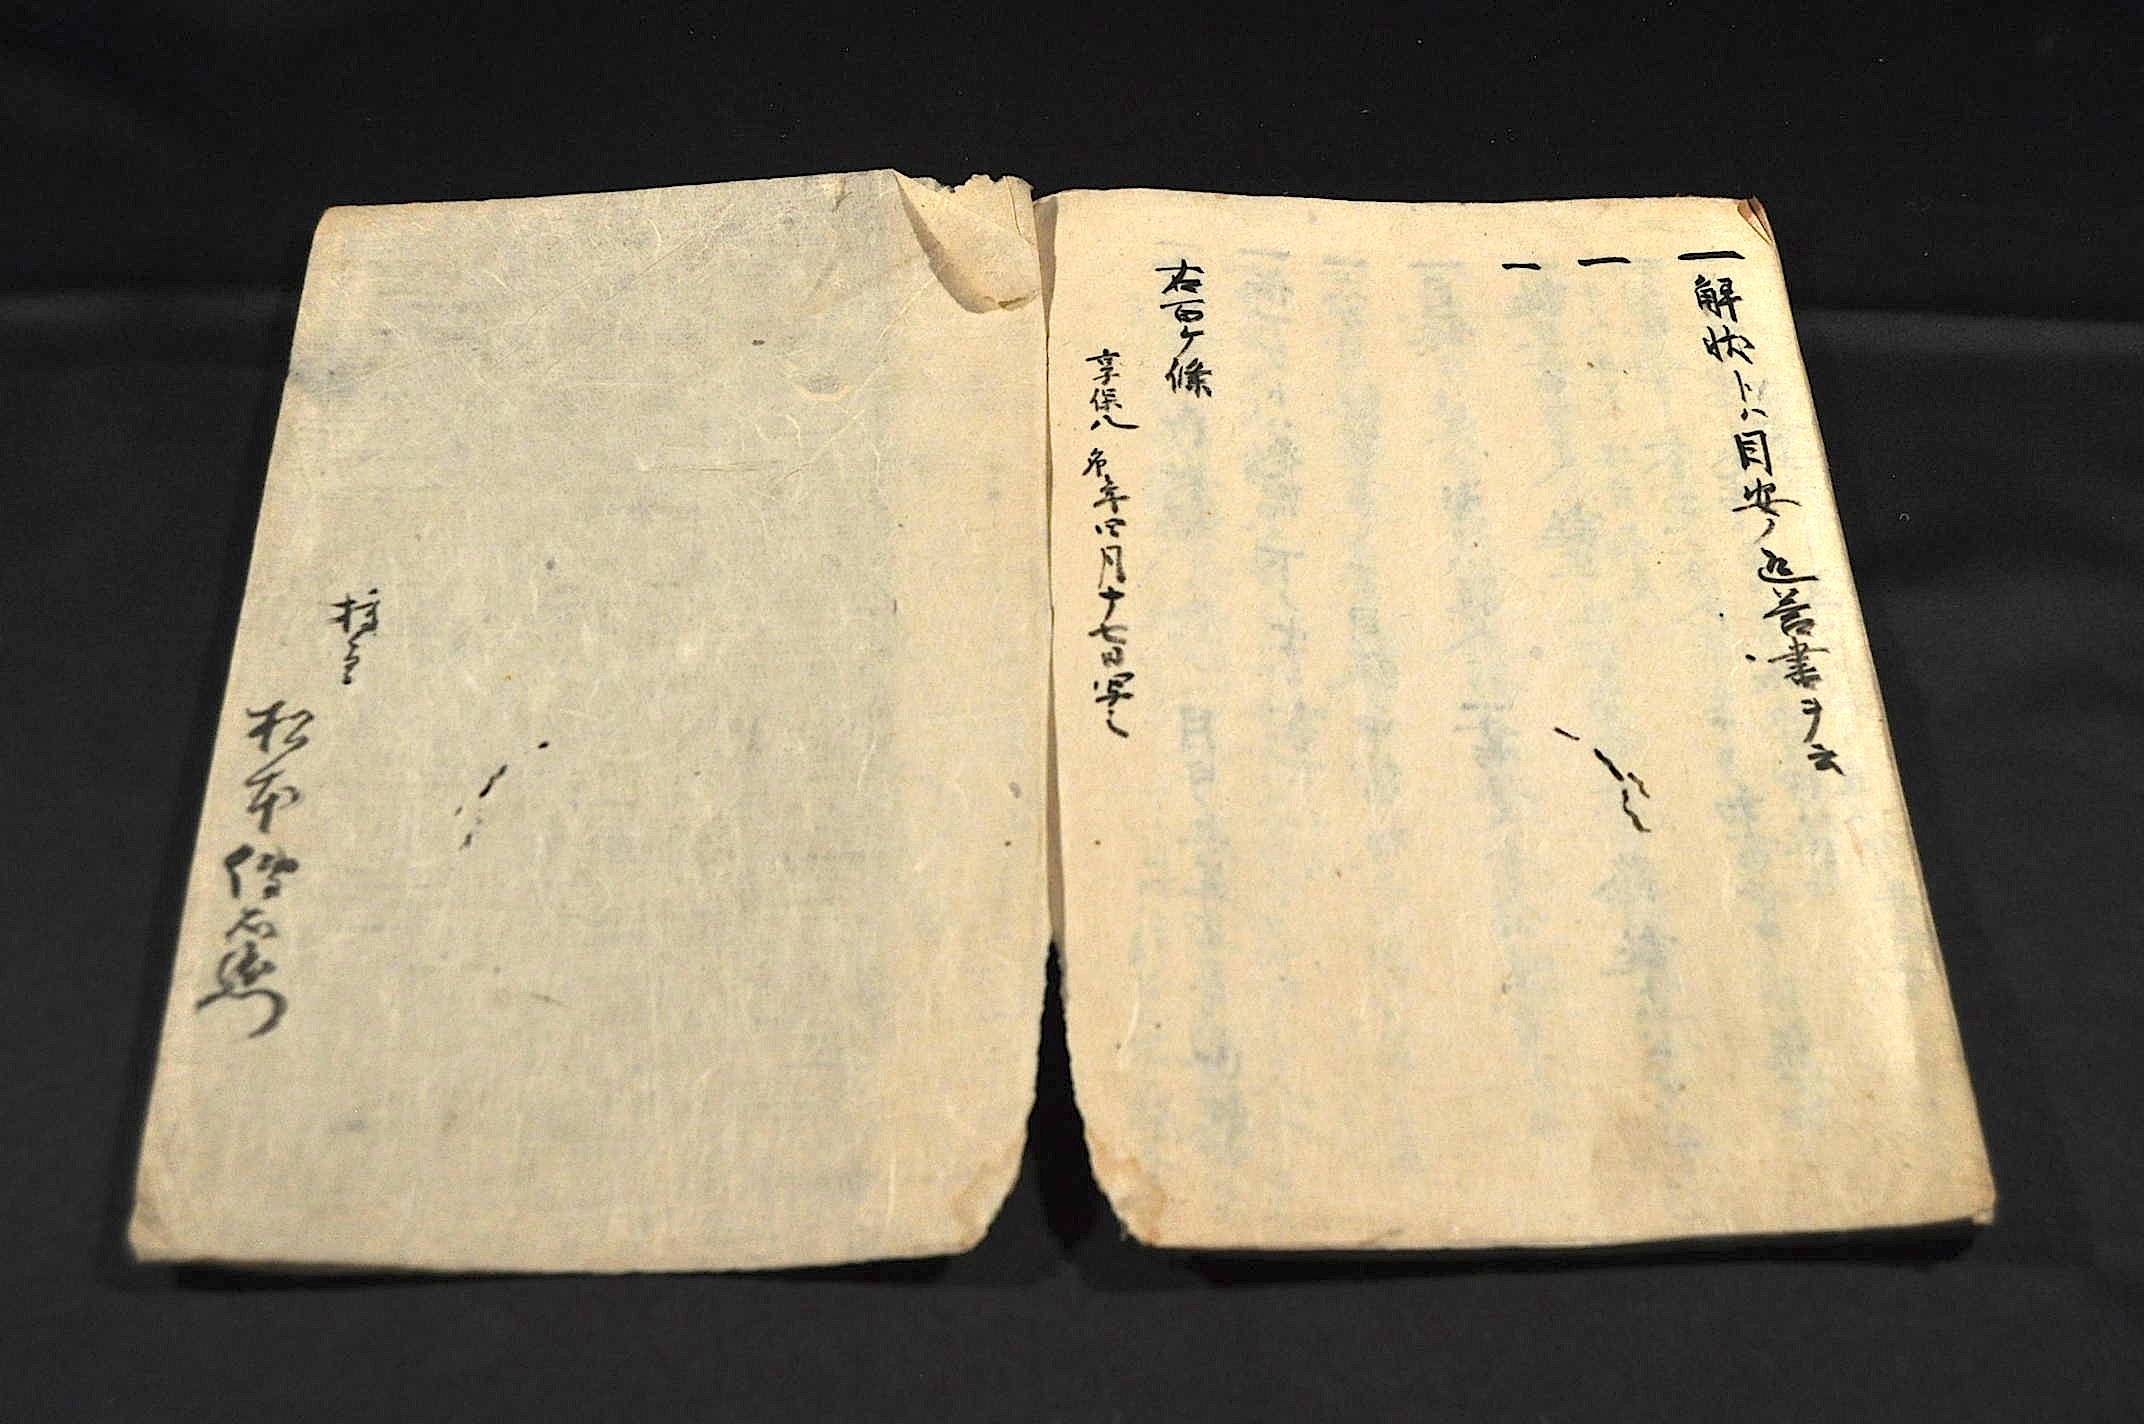 一解状トハ目安ノ返答書ヲ云
一
一
右百ケ條
享保八 年四月十七日写之
松本傳右衛門